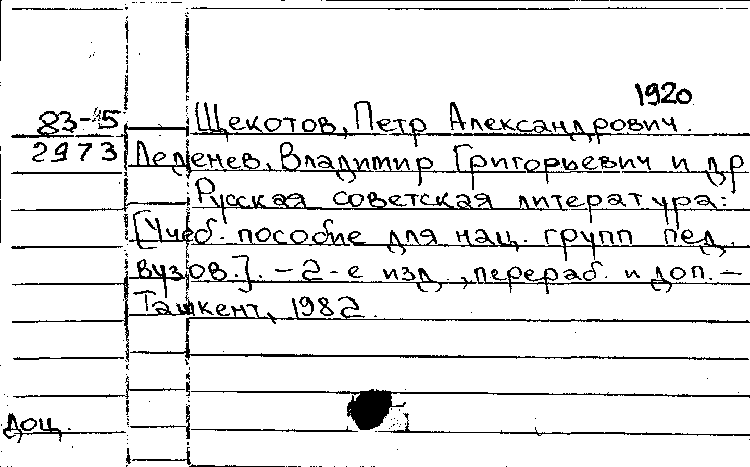 1920
83-5 Щекотов, Петр Александрович.
2973 Леденев, Владимир Григорьевич и др
Русская советская литература:
[Учеб. пособие для нац. групп пед.
вузов.]. - 2-е изд., перераб. и доп. -
Ташкент, 1982.
доц.